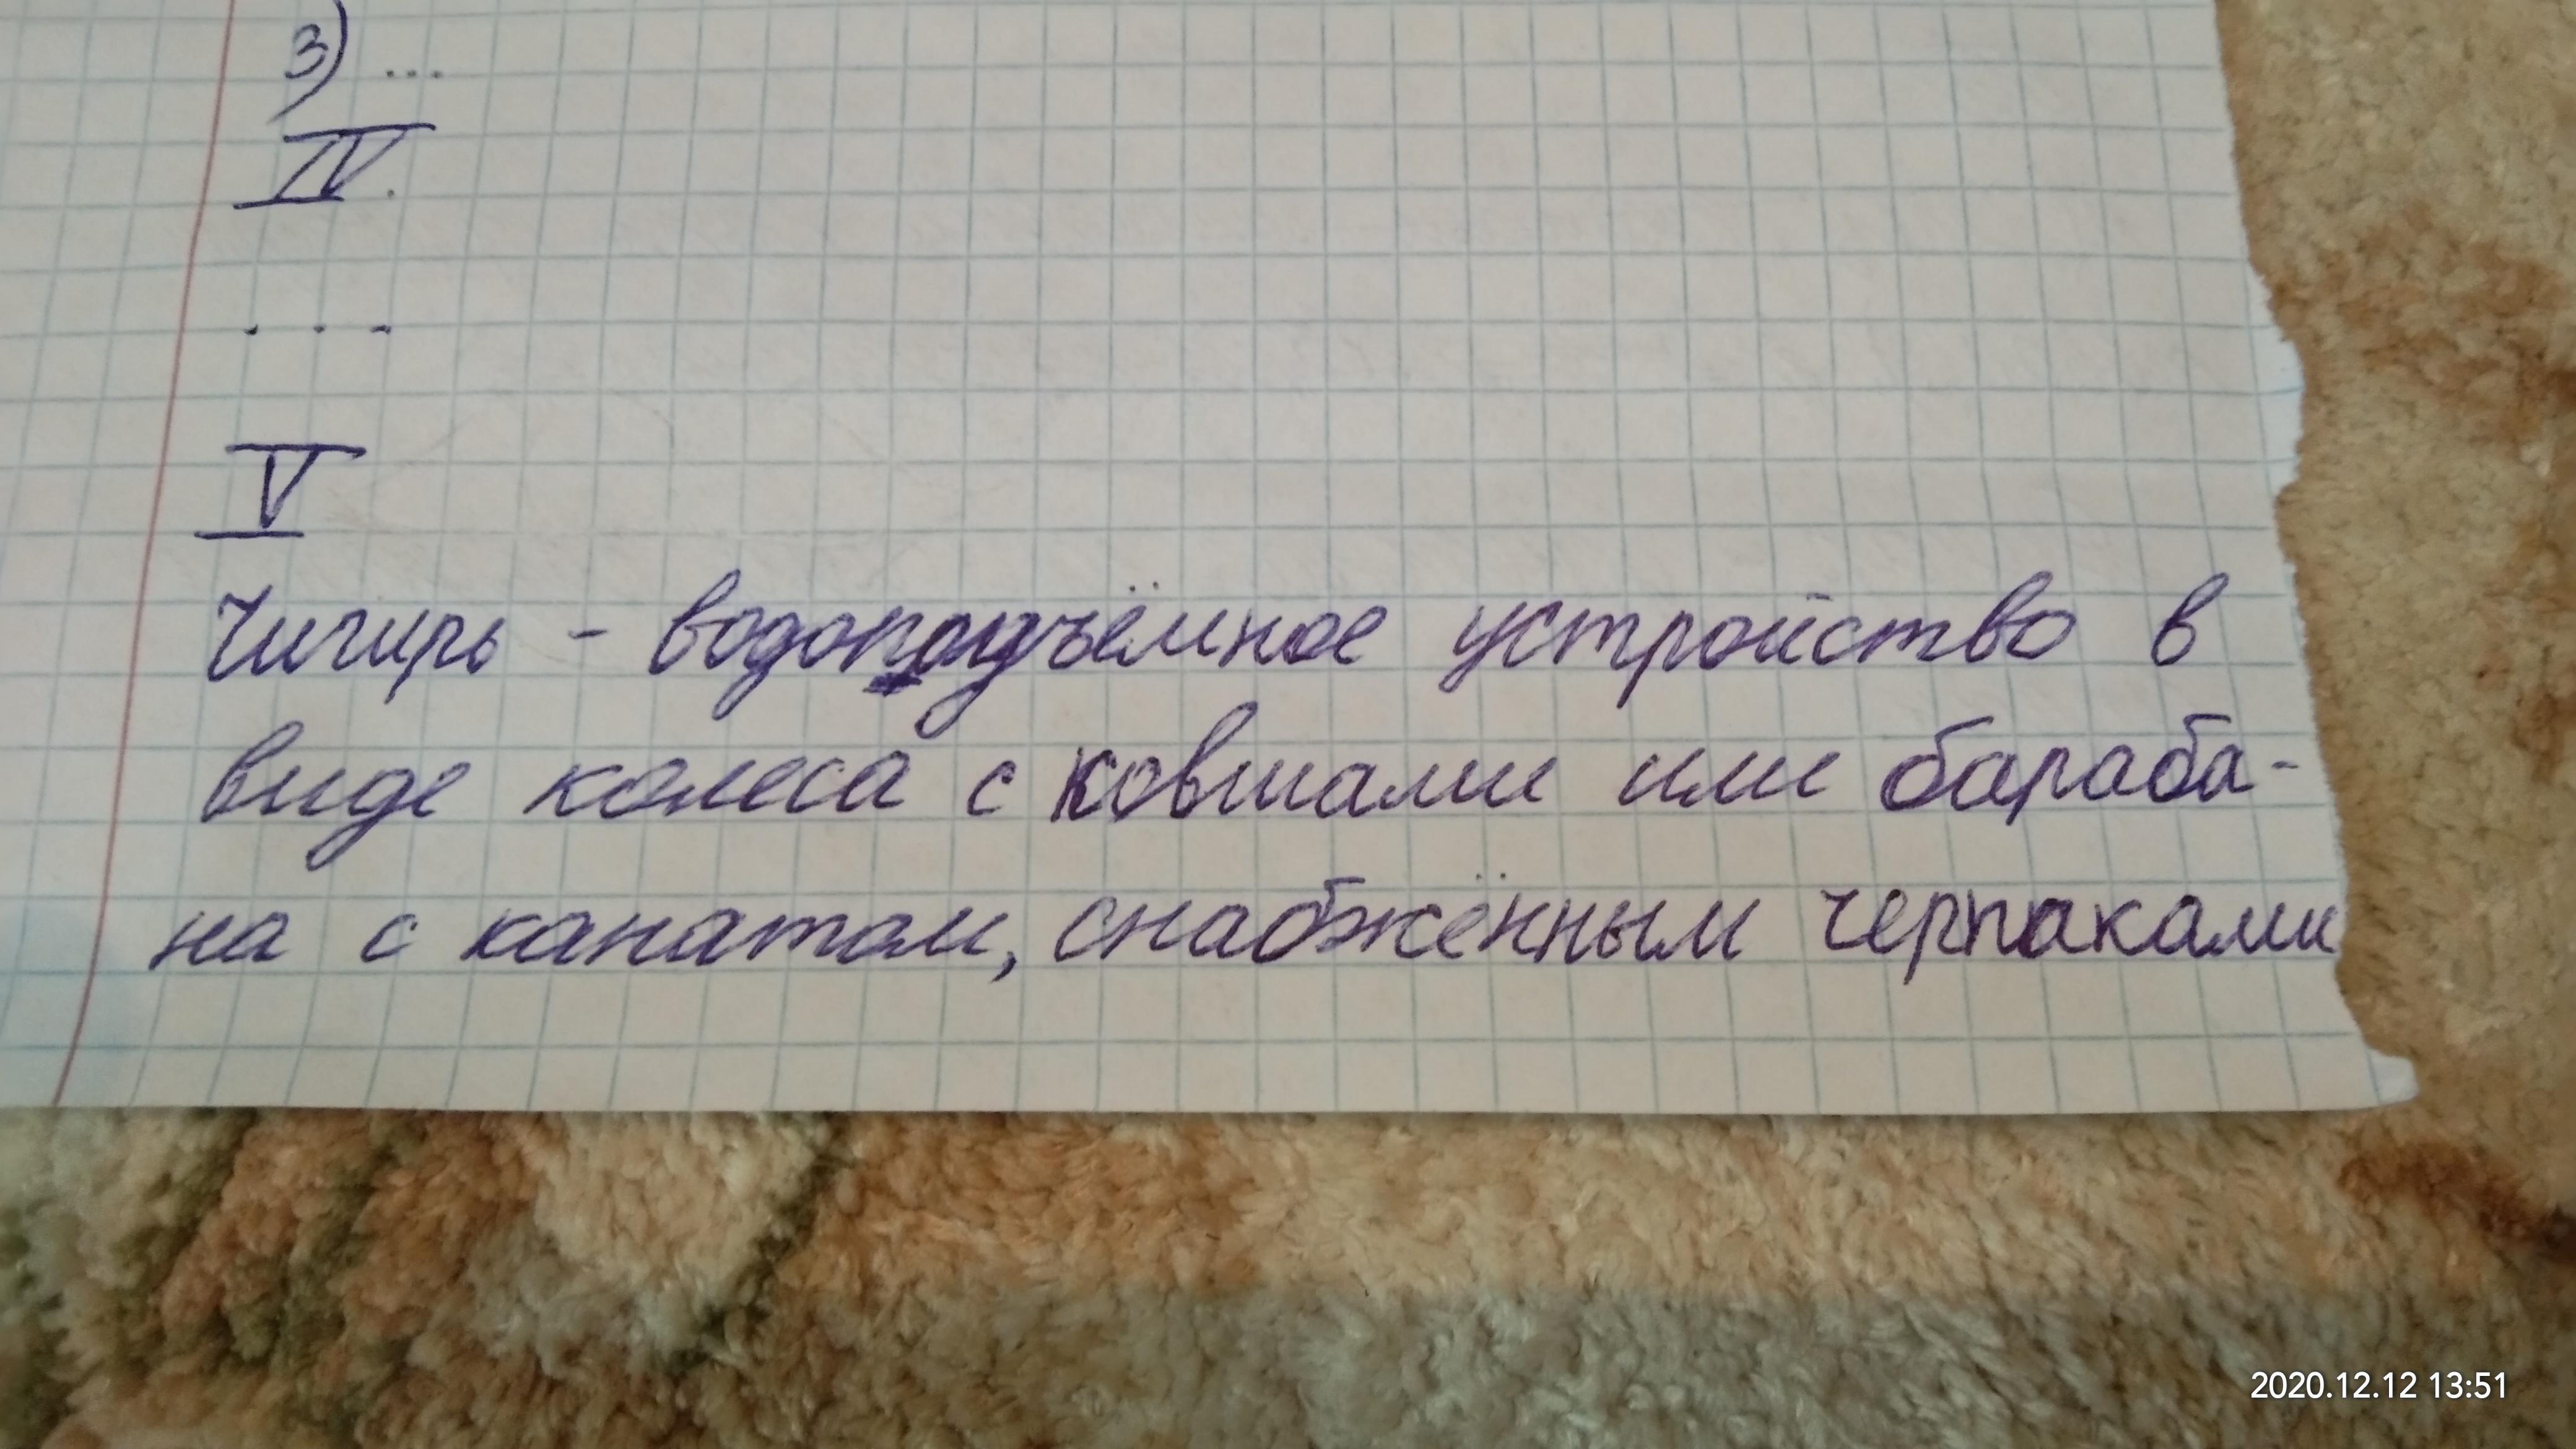 3) ...
IV.
...
V
Чигирь - водоподъёмное устройство в
виде колеса с ковшами или бараба-
на с канатом, снабжённым черпаками
2020.12.12 13:51